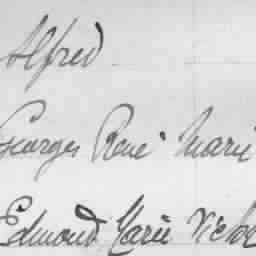 Alfred
Georges René Marie
Edmond Marie Victor